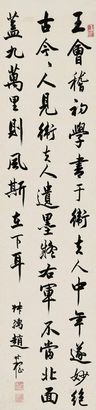 王會稽初學書于衛夫人中年遂妙絕
古今人見衛夫人遺墨疑右軍不當北面
蓋九萬里則風斯在下耳